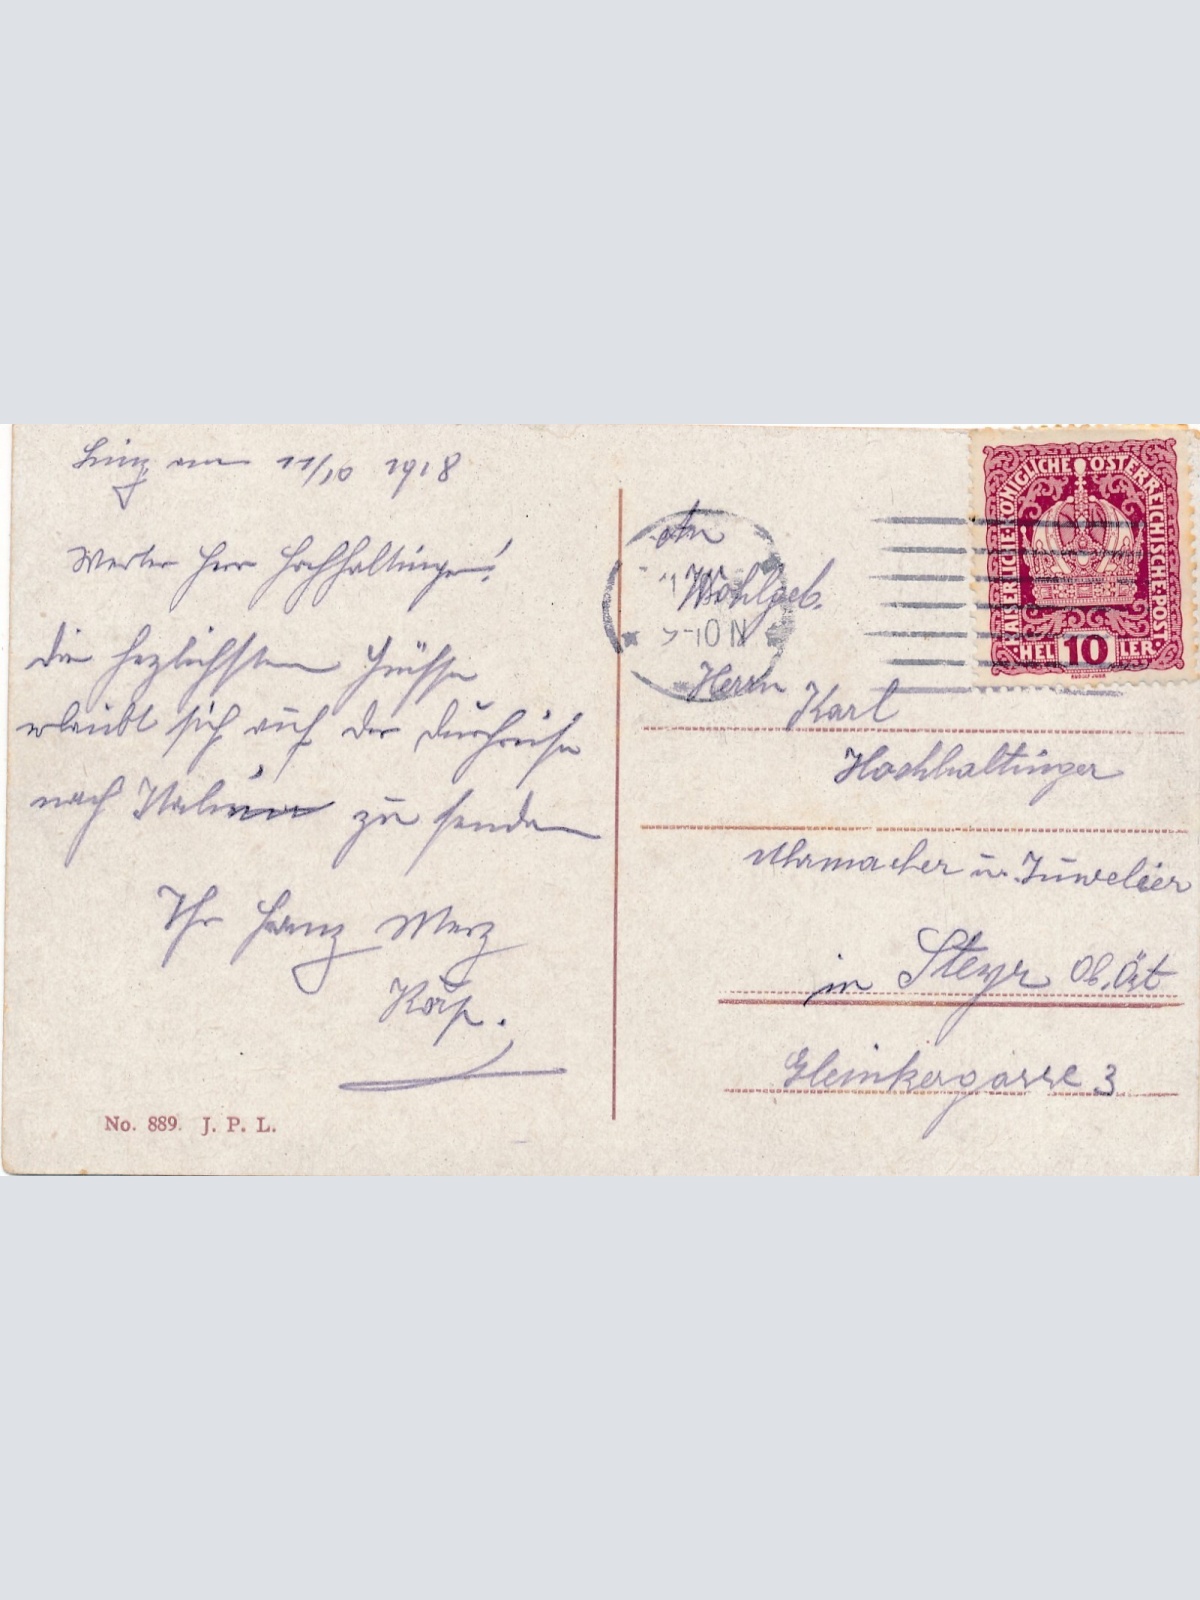 Linz am 11/10 1918
Werter Herr Hochhaltinger!
Die herzlichsten Grüsse
erlaubt sich auf der Durchreise
nach Italien zu senden
Ihr Franz Merz
No. 889. J. P. L.
KAISERLICHE·KÖNIGLICHE ÖSTERREICHISCHE·POST·
HEL 10 LER
-10 N
An
Wohlgeb.
Herrn Karl
Hochhaltinger
Uhrmacher u. Juwelier
in Steyr Ob. Öst
Gleinkergasse 3